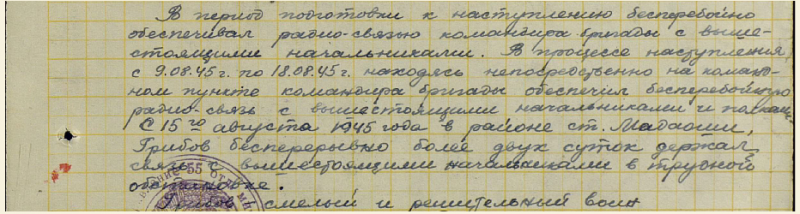 В период подготовки к наступлению бесперебойно
обеспечивал радио-связью командира бригады с выше-
стоящими начальниками. В процессе наступления
с 9.08.45 г. по 18.08.45 г. находясь непосредственно на команд-
ном пункте командира бригады обеспечил бесперебойную
радио-связь с вышестоящими начальниками и
С 15го августа 1945 года в районе ст. Мадаоши,
Грибов бесперерывно более двух суток держал
связь с вышестоящими начальниками в трудной
обстановке.
Грибов смелый и решительный воин
55